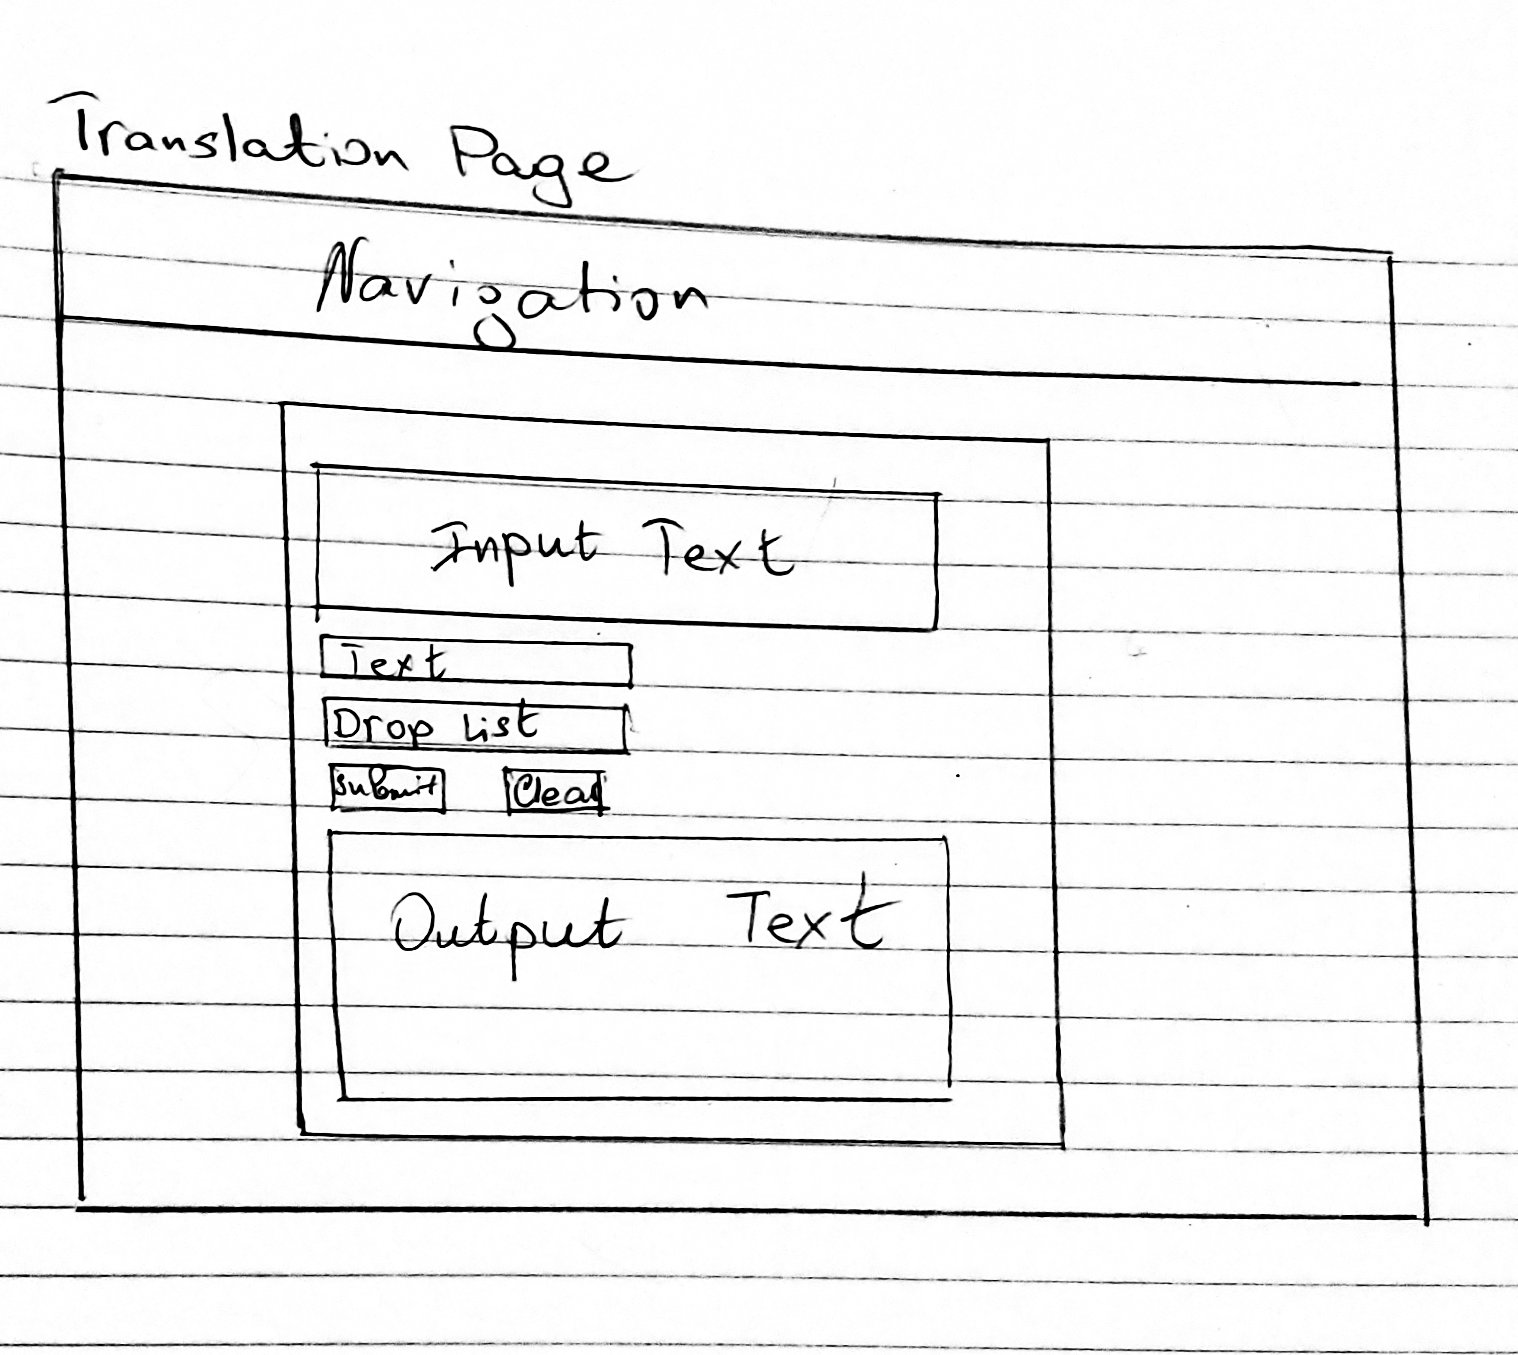 Translation Page
Navigation
Input Text
Text
Drop List
Submit
Clear
Output Text